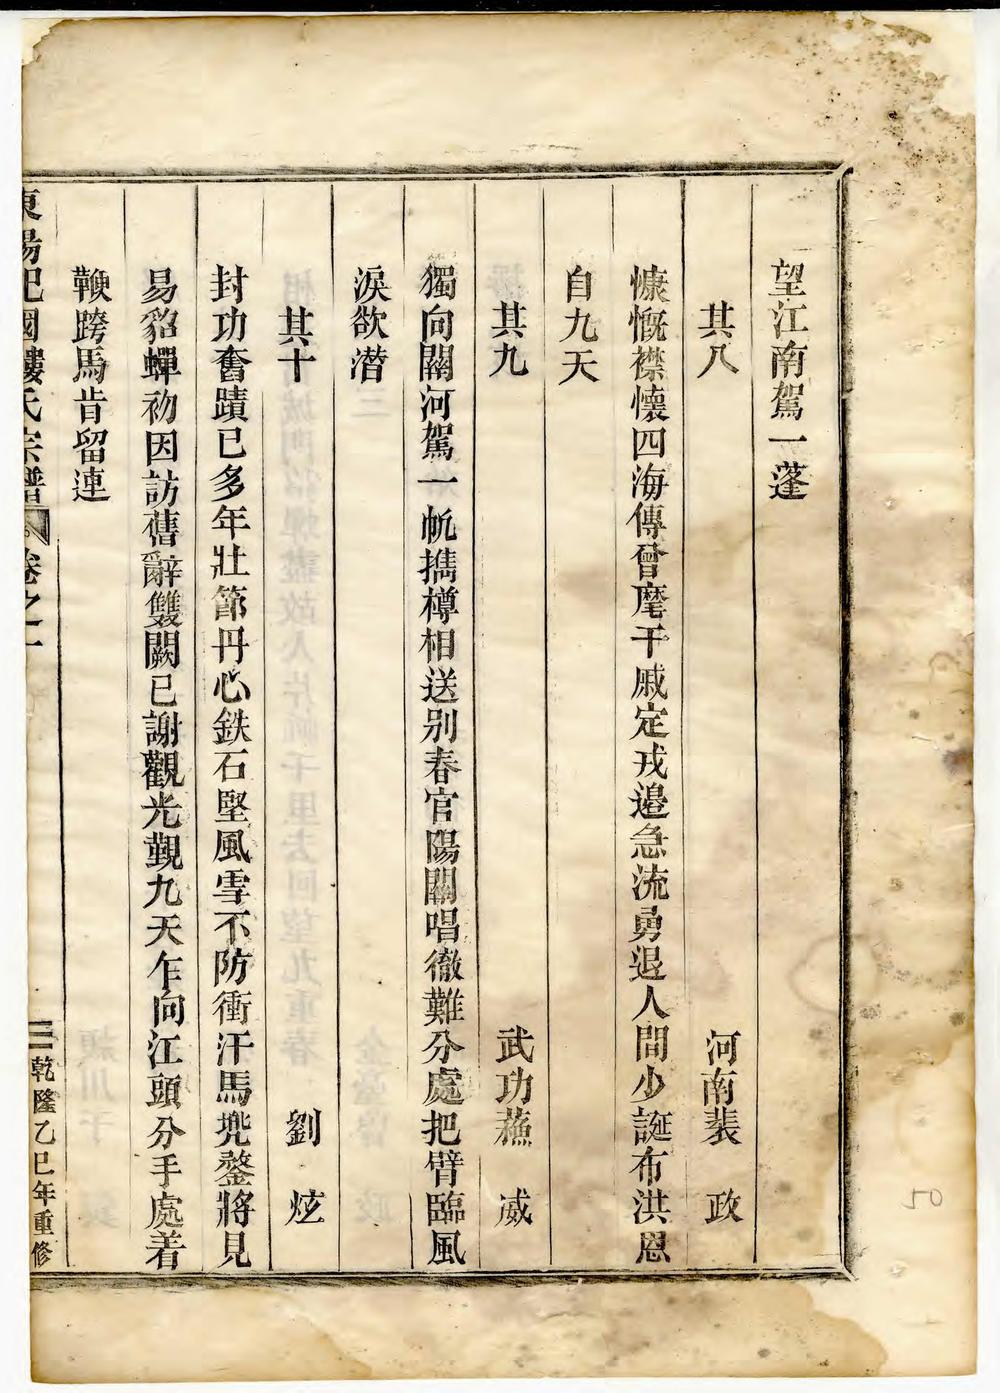 望江南駕一蓬
其八 河南裴 政
慷慨襟懷四海傳曾麾干戚定戎邉急流勇退人間少誕布洪恩
自九天
其九 武功蘓 威
獨向關河駕一帆擕樽相送别春官陽關唱徹難分處把臂臨風
淚欲潜
其十 劉 炫
封功奮蹟已多年壯節丹心鉄石堅風雪不防衝汗馬兠鍪將見
易貂蟬初因訪舊辭雙闕已謝觀光覲九天乍向江頭分手處着
鞭跨馬肯留連
東陽玘國婁氏宗譜 卷之一 三 乾隆乙巳年重修